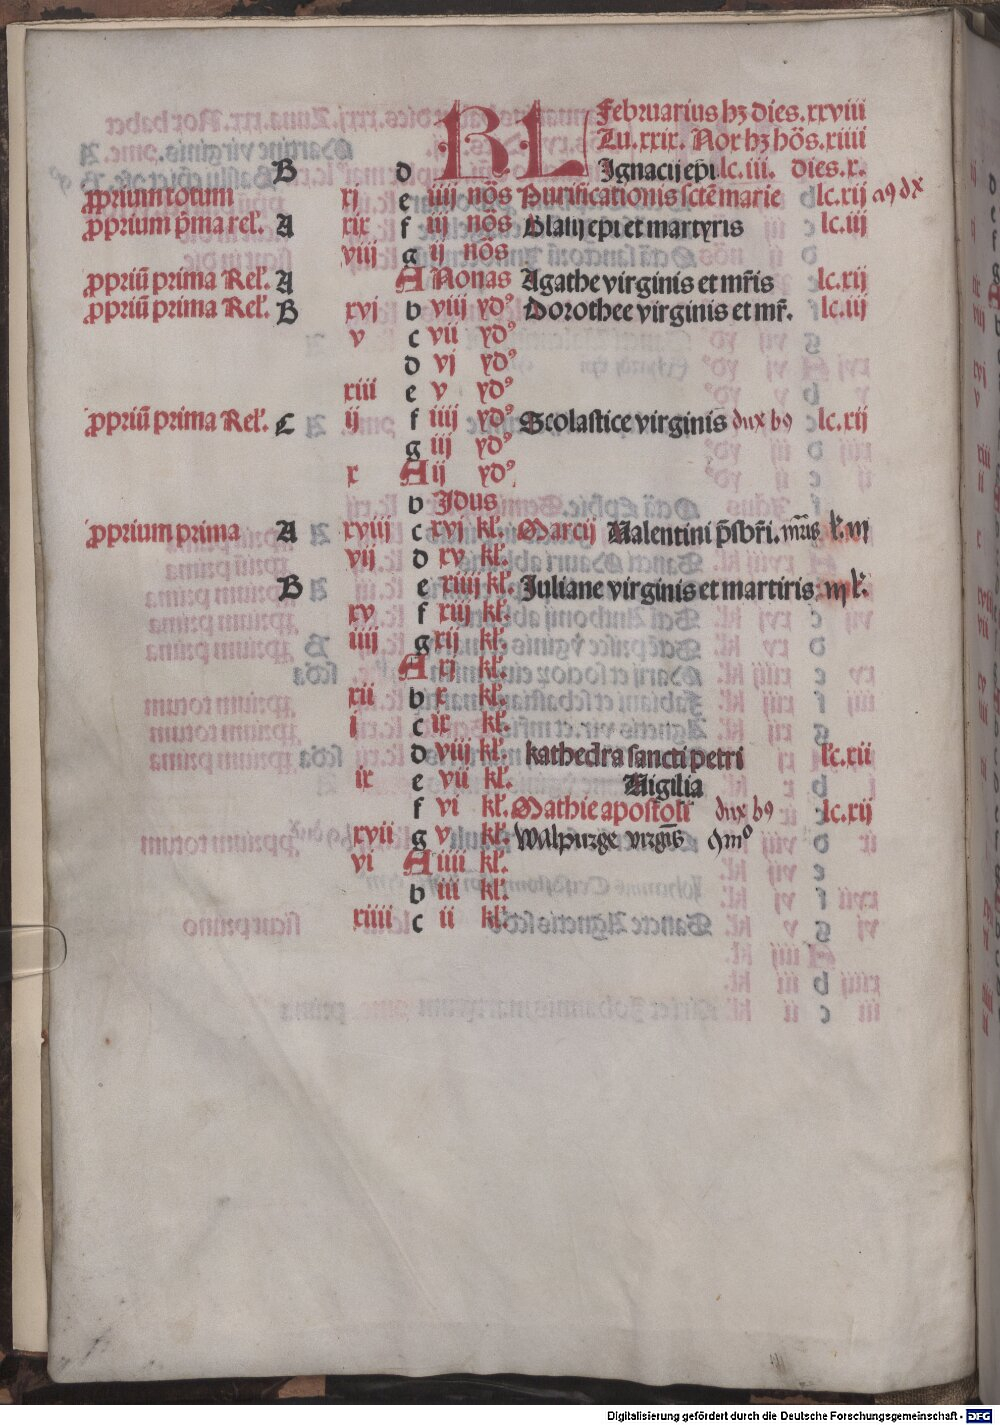 KL Februarius hz dies. xxviii
Lu. xxix. Nox hz hōs. xiiii
B d Ignacij epi. lc. iii. dies. x.
ꝓprium totum xj e iiij nōs Purificationis sctē marie lc. xij aꝯ dx
ꝓprium p̄ma rel̕. A xix f iij nōs Blasij epi et martyris lc. iij
viij g ij nōs
ꝓpriū prima Rel̕. A A Nonas Agathe virginis et mr̄is lc. xij
ꝓpriū prima Rel̕. B xvj b viij ydꝰ Dorothee virginis et mr̄. lc. iij
v c vii ydꝰ
d vj ydꝰ
xiii e v ydꝰ
ꝓpriū prima Rel̕. C ij f iiij ydꝰ Scolastice virginis dux bꝯ lc. xij
g iij ydꝰ
x A ij ydꝰ
b Idus
ꝓprium prima A xviij c xvj kl̕. Marcij Valentini p̄sbr̄i. kl̕. m
vij d xv kl̕.
B e xiiij kl̕. Juliane virginis et martiris. m kl̕.
xv f xiij kl̕.
iiij g xij kl̕.
A xj kl̕.
xii b x kl̕.
j c ix kl̕.
d viij kl̕. kathedra sancti petri lc. xii
ix e vij kl̕. Vigilia
f vi kl̕. Mathie apostoli dux bꝯ lc. xij
xvii g v kl̕. Walpurge virginis
vi A iiii kl̕.
b iii kl̕.
xiiii c ii kl̕.
Digitalisierung gefördert durch die Deutsche Forschungsgemeinschaft - DFG